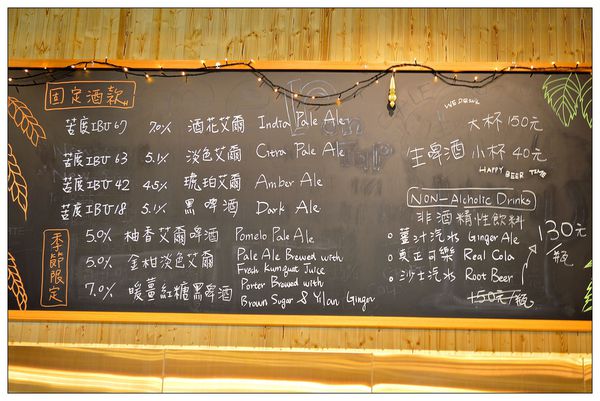 固定酒款
苦度IBU67 7.0% 酒花艾爾 India Pale Ale
苦度IBU63 5.1% 淡色艾爾 Citra Pale Ale
苦度IBU42 4.5% 琥珀艾爾 Amber Ale
苦度IBU18 5.1% 黑啤酒 Dark Ale
季節限定
5.0% 柚香艾爾啤酒 Pomelo Pale Ale
5.0% 金柑淡色艾爾 Pale Ale Brewed with
Fresh Kumquat Juice
7.0% 暖薑紅糖黑啤酒 Porter Brewed with
Brown Sugar & Yilan Ginger
大杯 150元
生啤酒 小杯 40元
HAPPY BEER TIME
NON-Alcholic Drinks
非酒精性飲料
薑汁汽水 Ginger Ale
真正可樂 Real Cola
沙士汽水 Root Beer
130元/瓶
150元/瓶